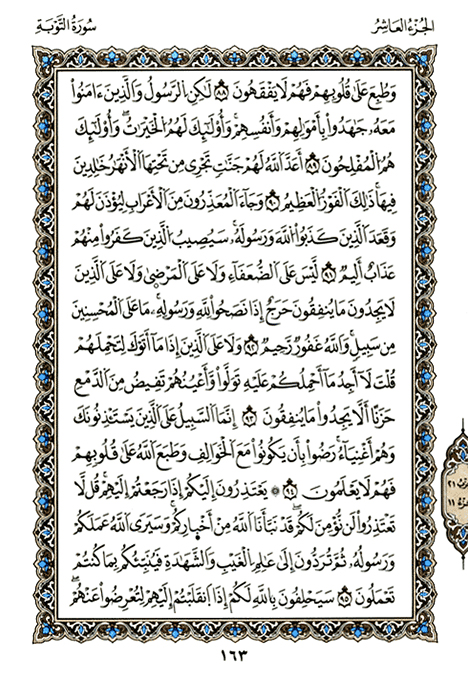 الجزء العاشر
سورة التوبة
وَطُبِعَ عَلَىٰ قُلُوبِهِمْ فَهُمْ لَا يَفْقَهُونَ ٨٨ لَٰكِنِ اِ۬لرَّسُولُ وَالَّذِينَ ءَامَنُواْ
مَعَهُۥ جَٰهَدُواْ بِأَمْوَٰلِهِمْ وَأَنفُسِهِمْۖ وَأُوْلَٰٓئِكَ لَهُمُ اُ۬لْخَيْرَٰتُۖ وَأُوْلَٰٓئِكَ
هُمُ اُ۬لْمُفْلِحُونَ ٨٩ أَعَدَّ اَ۬للَّهُ لَهُمْ جَنَّٰتٍ تَجْرِي مِن تَحْتِهَا اَ۬لْأَنْهَٰرُ خَٰلِدِينَ
فِيهَاۖ ذَٰلِكَ اَ۬لْفَوْزُ اُ۬لْعَظِيمُ ٩٠ وَجَآءَ اَ۬لْمُعَذِّرُونَ مِنَ اَ۬لْأَعْرَابِ لِيُوذَنَ لَهُمْ
وَقَعَدَ اَ۬لَّذِينَ كَذَبُواْ اُ۬للَّهَ وَرَسُولَهُۥۖ سَيُصِيبُ اُ۬لَّذِينَ كَفَرُواْ مِنْهُمْ
عَذَابٌ أَلِيمٌ ٩١ لَّيْسَ عَلَى اَ۬لضُّعَفَآءِ وَلَا عَلَى اَ۬لْمَرْضَىٰ وَلَا عَلَى اَ۬لَّذِينَ
لَا يَجِدُونَ مَا يُنفِقُونَ حَرَجٌ إِذَا نَصَحُواْ لِلَّهِ وَرَسُولِهِۦۖ مَا عَلَى اَ۬لْمُحْسِنِينَ
مِن سَبِيلٍۖ وَاللَّهُ غَفُورٌ رَّحِيمٌ ٩٢ وَلَا عَلَى اَ۬لَّذِينَ إِذَا مَآ أَتَوْكَ لِتَحْمِلَهُمْ
قُلْتَ لَآ أَجِدُ مَآ أَحْمِلُكُمْ عَلَيْهِ تَوَلَّواْ وَّأَعْيُنُهُمْ تَفِيضُ مِنَ اَ۬لدَّمْعِ
حَزَنًا أَلَّا يَجِدُواْ مَا يُنفِقُونَ ٩٣ إِنَّمَا اَ۬لسَّبِيلُ عَلَى اَ۬لَّذِينَ يَسْتَٰذِنُونَكَ
وَهُمْ أَغْنِيَآءُۖ رَضُواْ بِأَن يَكُونُواْ مَعَ اَ۬لْخَوَالِفِ وَطَبَعَ اَ۬للَّهُ عَلَىٰ قُلُوبِهِمْ
فَهُمْ لَا يَعْلَمُونَ ٩٤ ۞ يَعْتَذِرُونَ إِلَيْكُمْ إِذَا رَجَعْتُمْ إِلَيْهِمْۖ قُل لَّا
تَعْتَذِرُواْ لَن نُّومِنَ لَكُمْ قَدْ نَبَّأَنَا اَ۬للَّهُ مِنْ أَخْبَارِكُمْۖ وَسَيَرَى اَ۬للَّهُ عَمَلَكُمْ
وَرَسُولُهُۥ ثُمَّ تُرَدُّونَ إِلَىٰ عَٰلِمِ اِ۬لْغَيْبِ وَالشَّهَٰدَةِ فَيُنَبِّئُكُم بِمَا كُنتُمْ
تَعْمَلُونَ ٩٥ سَيَحْلِفُونَ بِاللَّهِ لَكُمْ إِذَا اَ۪نقَلَبْتُمْ إِلَيْهِمْ لِتُعْرِضُواْ عَنْهُمْۖ
١٦٣